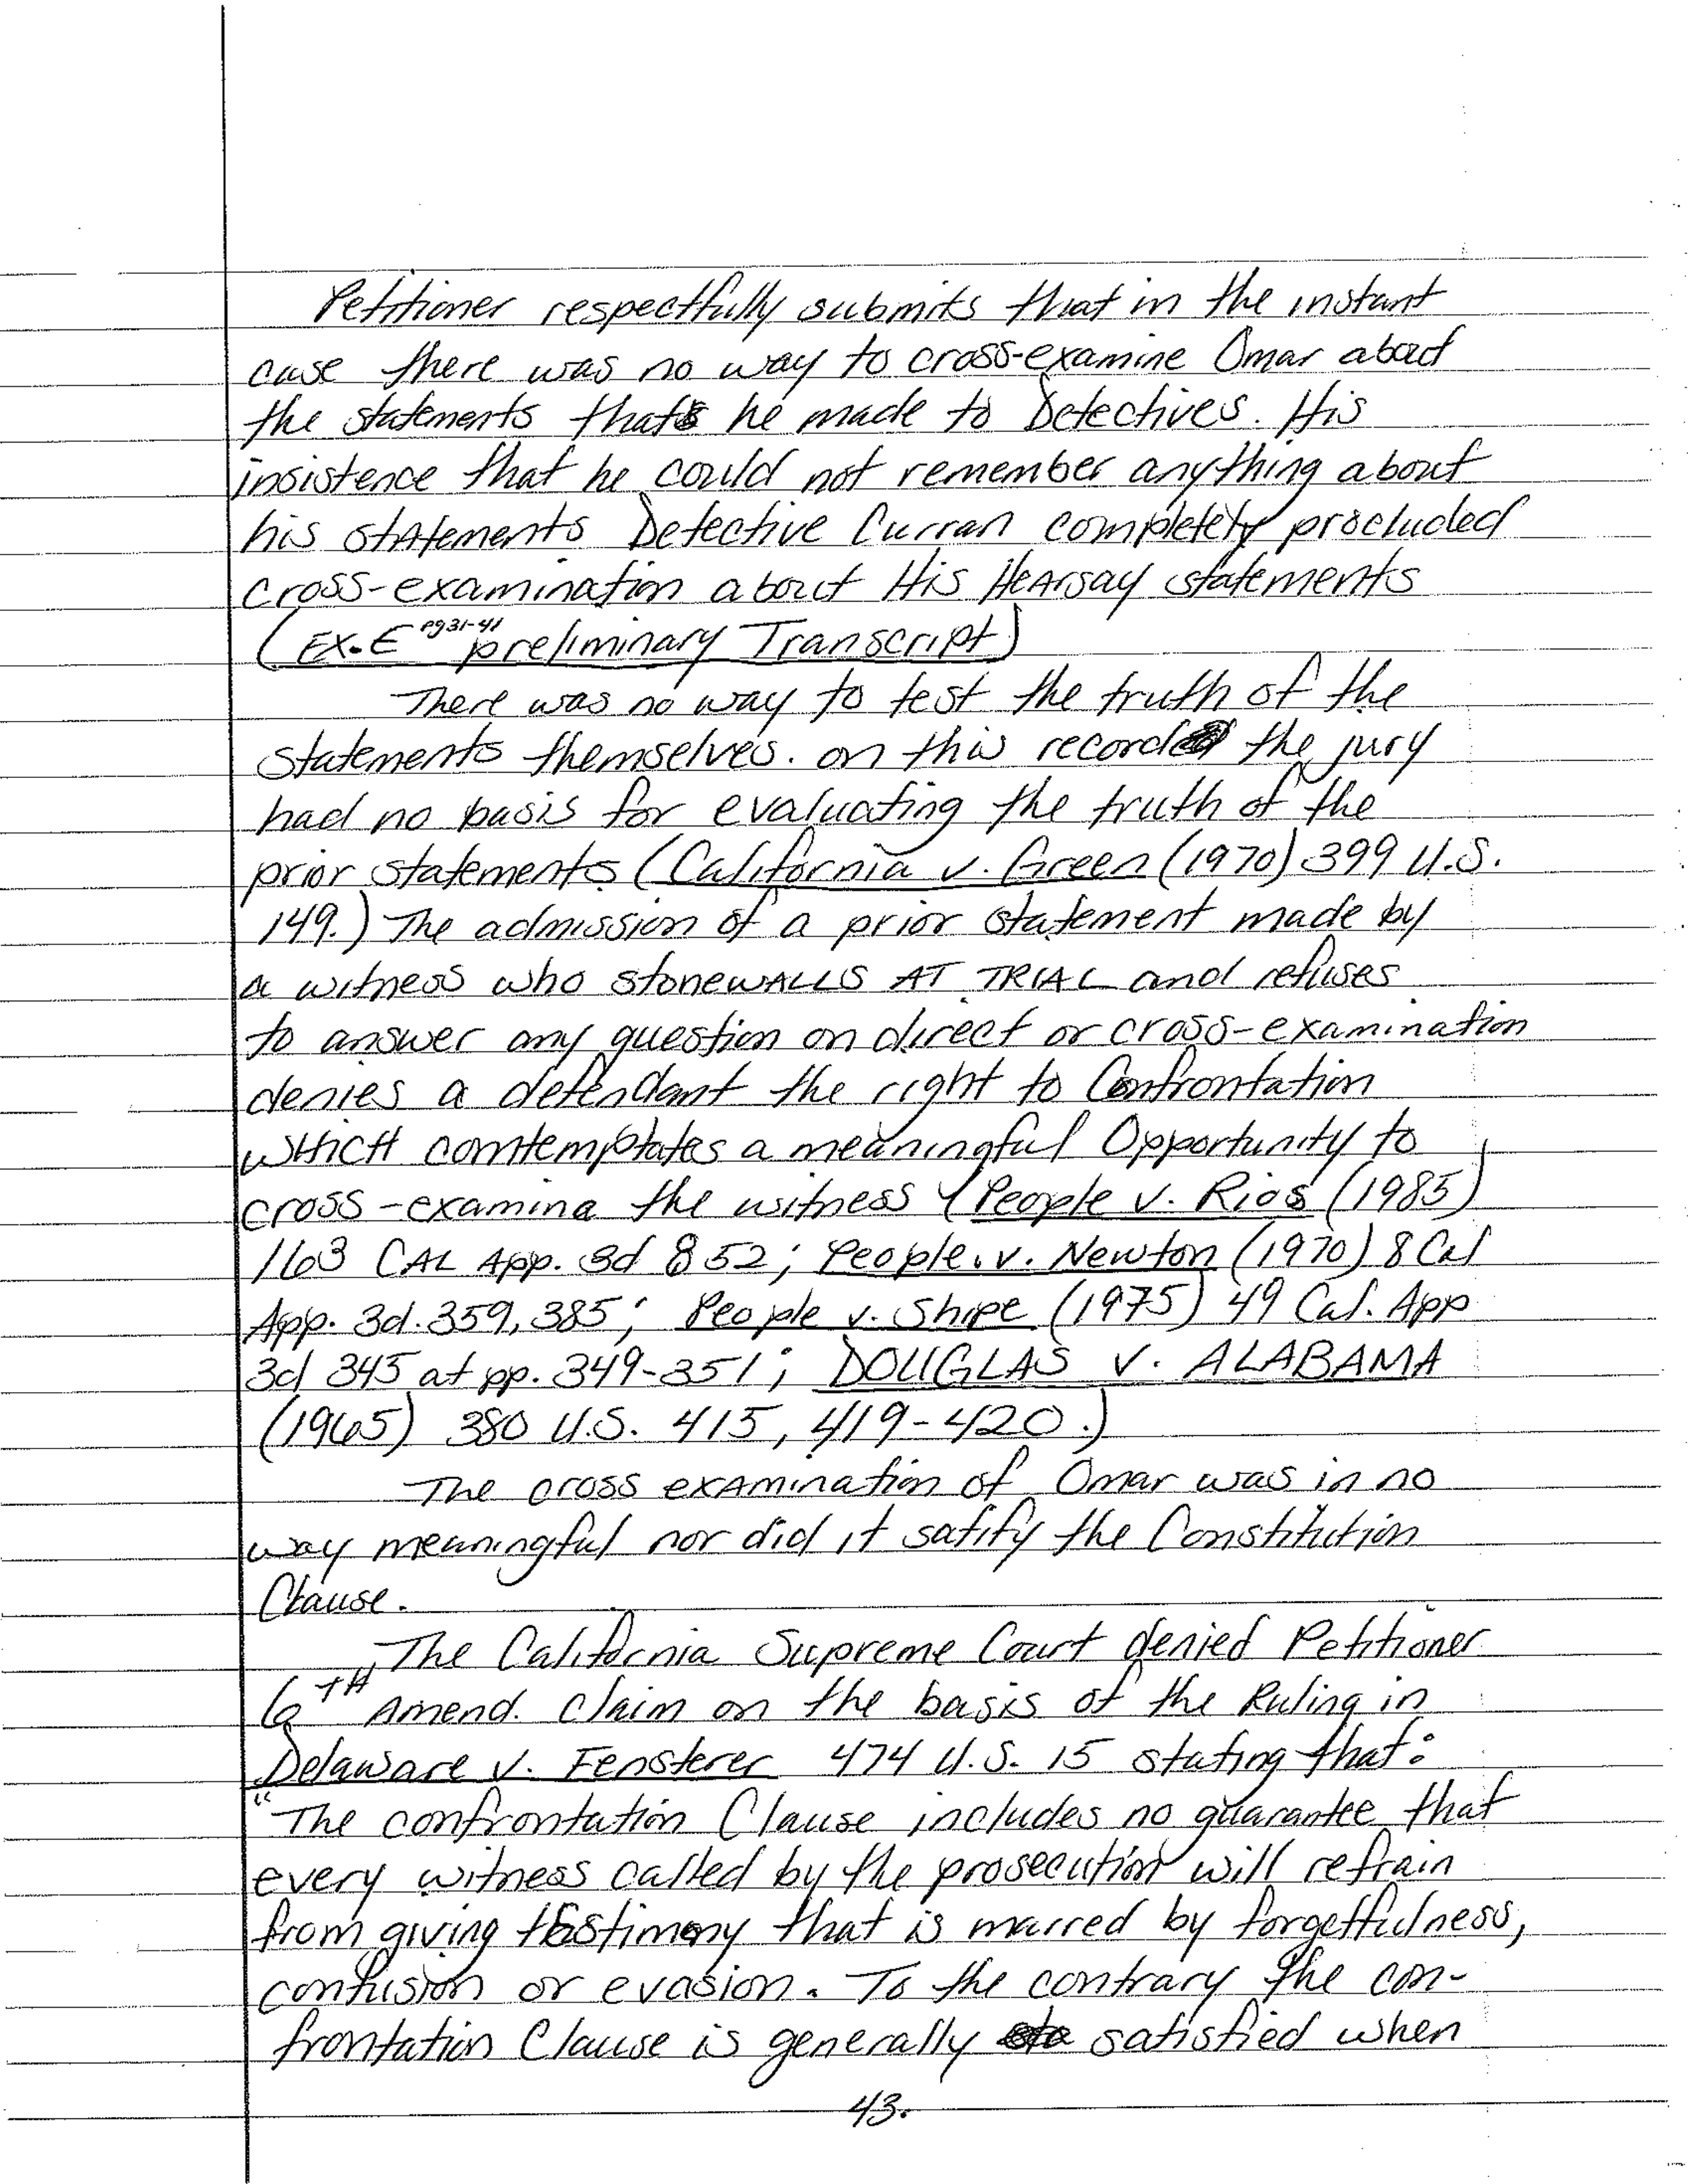 Petitioner respectfully submits that in the instant
case there was no way to cross-examine Omar about
the statements that he made to Detectives. His
insistence that he could not remember anything about
his statements Detective Curran completely procluded
cross-examination about His Hearsay statements
(Ex. E pg 31-41 preliminary Transcript)
There was no way to test the truth of the
statements themselves. on this record the jury
had no basis for evaluating the truth of the
prior statements (California v. Green (1970) 399 U.S.
149.) The admission of a prior statement made by
a witness who stonewALLS AT TRIAL and refuses
to answer any question on direct or cross-examination
denies a defendant the right to Confrontation
WHICH comtemplates a meaningful Opportunity to
cross-examina the witness (People v. Rios (1985)
163 CAL App. 3d 852; People. v. Newton (1970) 8 Cal
App. 3d. 359, 385; People v. Shipe (1975) 49 Cal. App
3d 345 at pp. 349-351; DOUGLAS V. ALABAMA
(1965) 380 U.S. 415, 419-420.)
The cross examination of Omar was in no
way meaningful nor did it satify the Constitution
Clause.
The California Supreme Court denied Petitioner
6TH Amend. claim on the basis of the Ruling in
Delaware v. Fensterer 474 U.S. 15 stating that:
"The confrontation Clause includes no guarantee that
every witness called by the prosecution will refrain
from giving testimony that is marred by forgetfulness,
confusion or evasion. To the contrary the con-
frontation Clause is generally satisfied when
43.